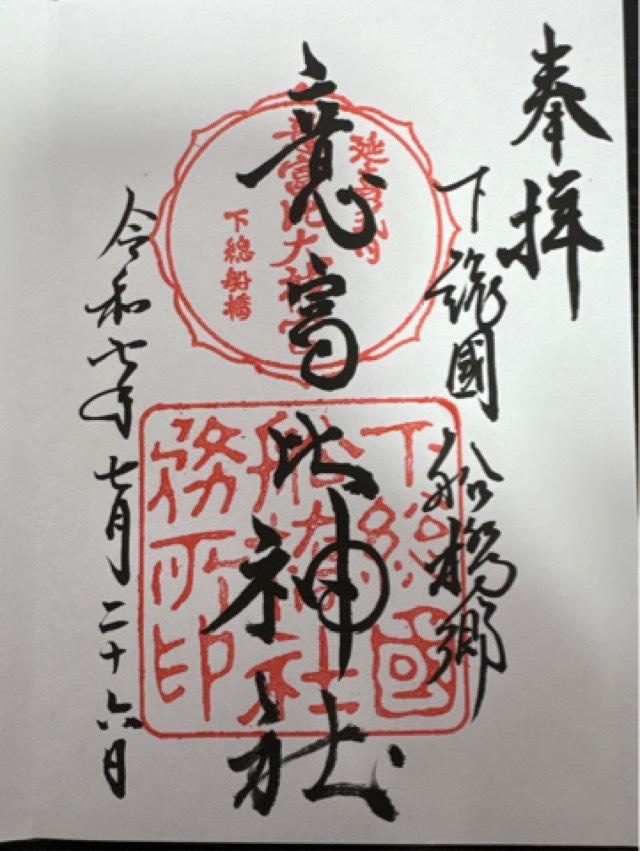 奉拝
下総國 船橋郷
意富比神社
令和七年 七月二十六日
延喜式内
意富比大神宮
下総船橋
下総國
船橋大社
務所印